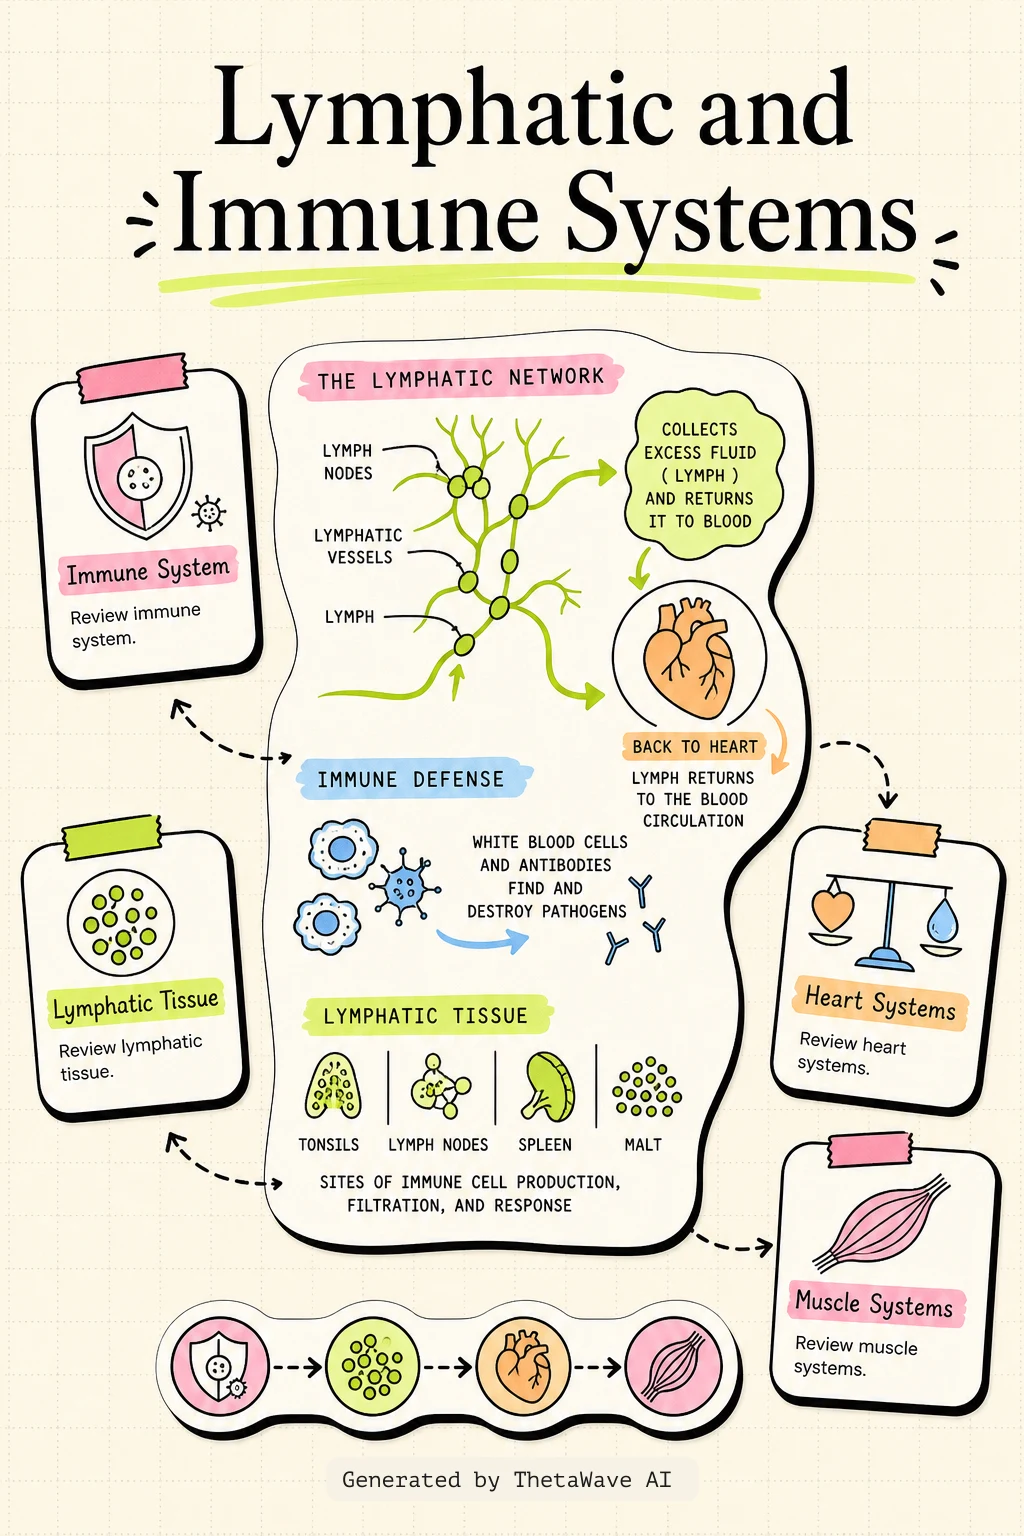 Lymphatic and
Immune Systems
Immune System
Review immune
system.
THE LYMPHATIC NETWORK
LYMPH
NODES
LYMPHATIC
VESSELS
LYMPH
COLLECTS
EXCESS FLUID
( LYMPH )
AND RETURNS
IT TO BLOOD
BACK TO HEART
LYMPH RETURNS
TO THE BLOOD
CIRCULATION
IMMUNE DEFENSE
WHITE BLOOD CELLS
AND ANTIBODIES
FIND AND
DESTROY PATHOGENS
Lymphatic Tissue
Review lymphatic
tissue.
Heart Systems
Review heart
systems.
LYMPHATIC TISSUE
TONSILS
LYMPH NODES
SPLEEN
MALT
SITES OF IMMUNE CELL PRODUCTION,
FILTRATION, AND RESPONSE
Muscle Systems
Review muscle
systems.
Generated by ThetaWave AI